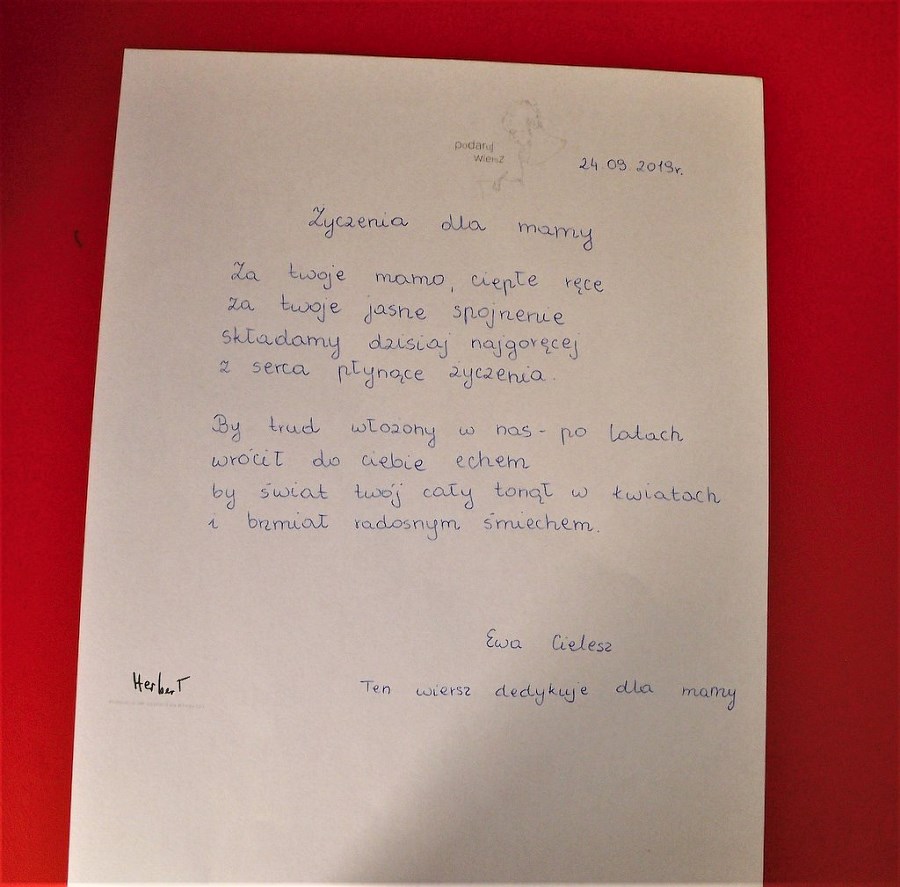 podaruj
wiersz
24.09.2019r.
Życzenia dla mamy
Za twoje mamo, ciepłe ręce
za twoje jasne spojrzenie
składamy dzisiaj najgoręcej
z serca płynące życzenia.
By trud włożony w nas - po latach
wrócił do ciebie echem
by świat twój cały tonął w kwiatach
i brzmiał radosnym śmiechem.
Ewa Cielesz
Herbert
Ten wiersz dedykuje dla mamy